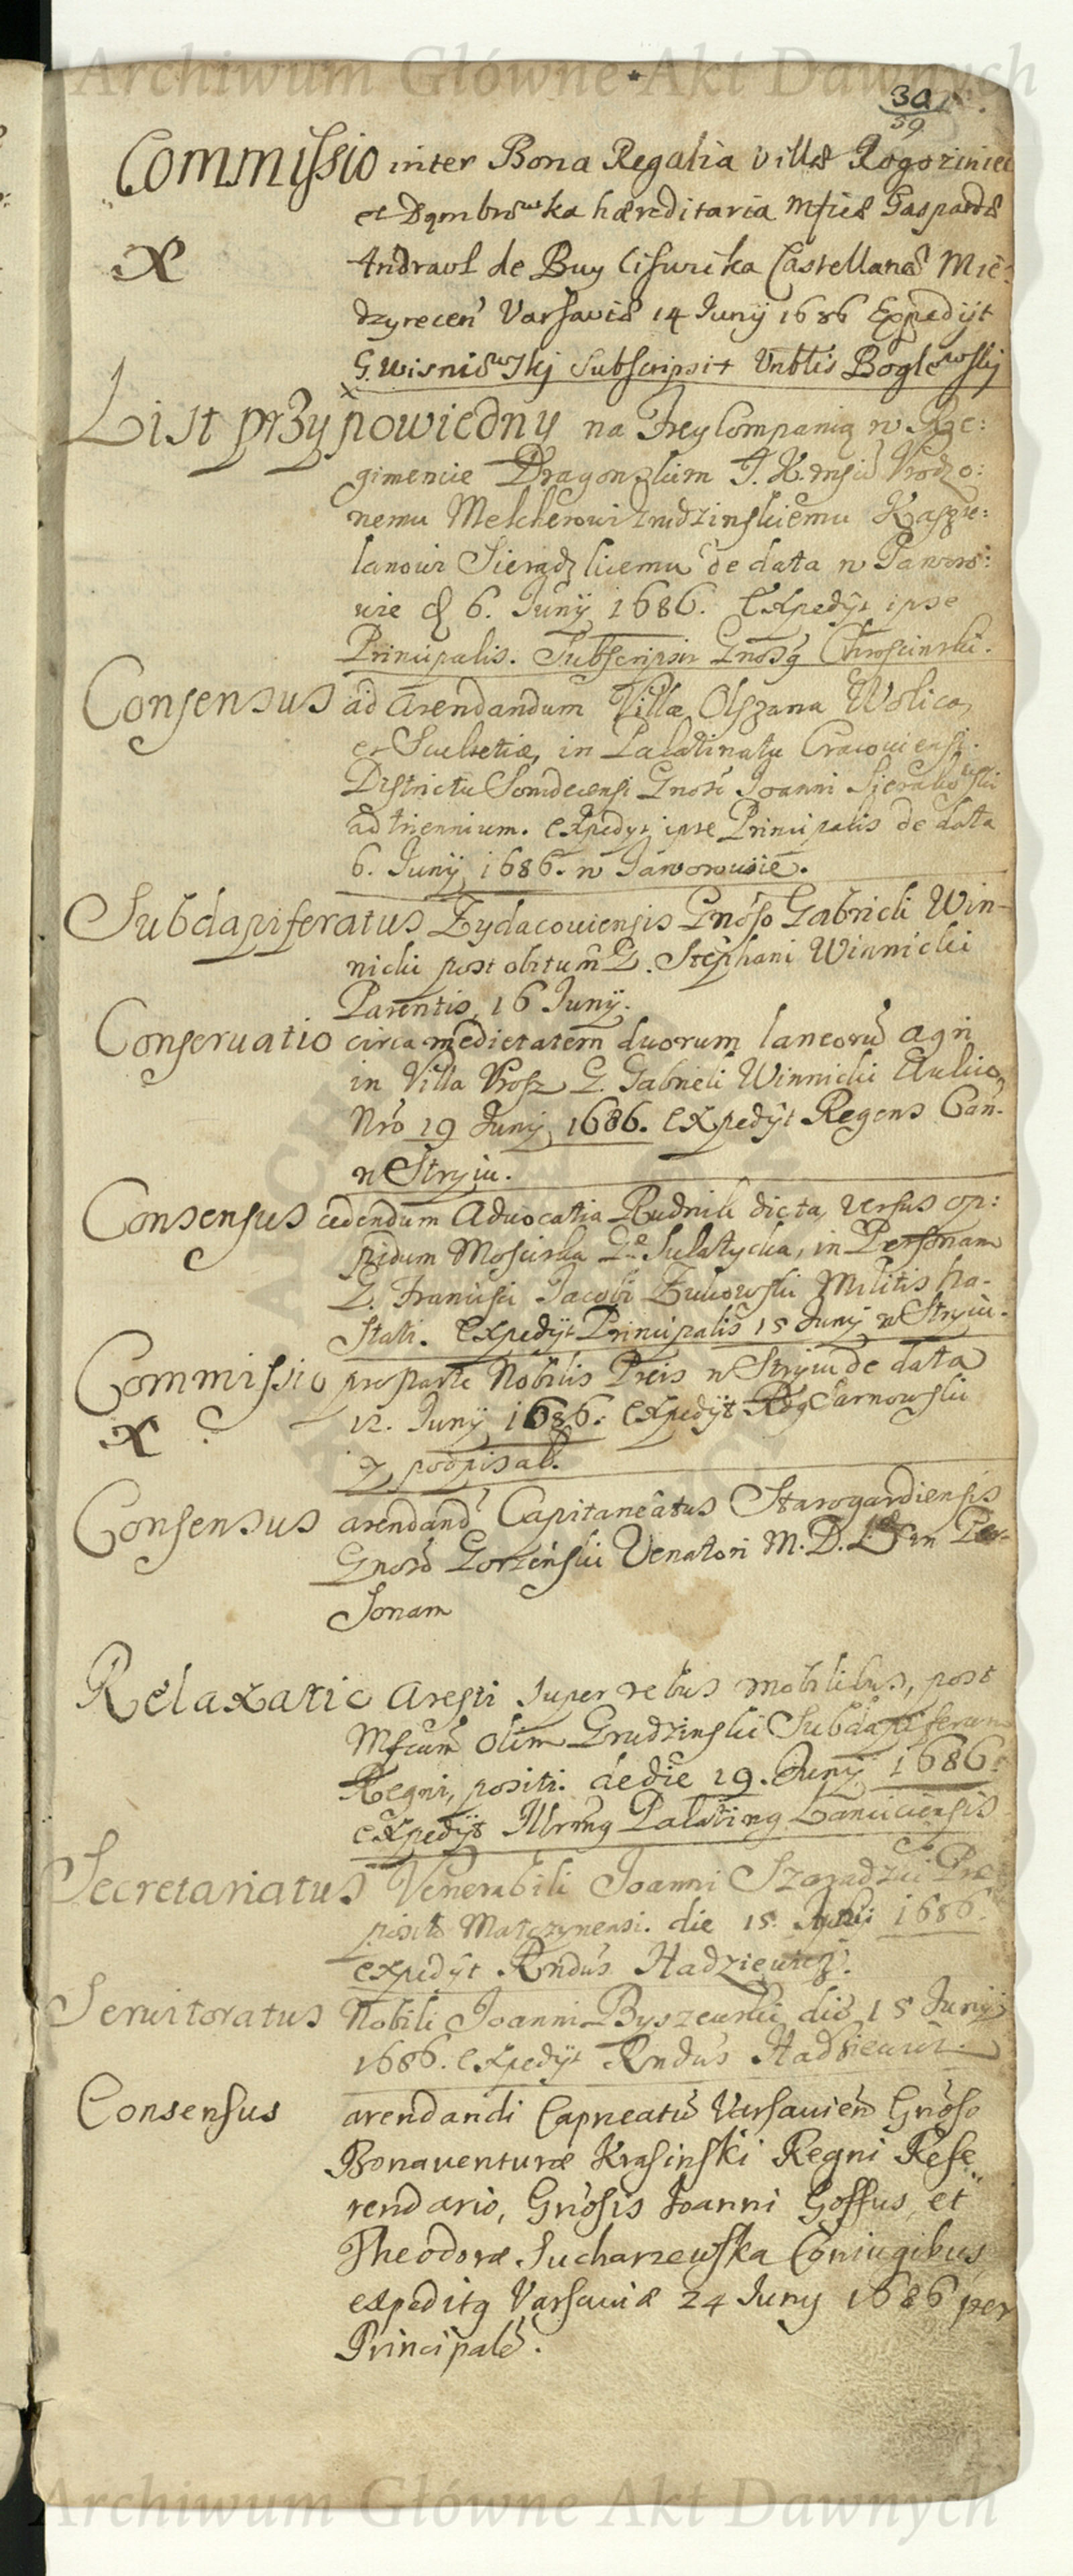 Archiwum Główne Akt Dawnych
30
59
Commissio inter Bona Regalia villæ Rogoziniec
et Dąmbrowka hæreditaria Mfici Gaspardi
de Buy Castellanæ Mie-
dzyreceń Varsaviæ 14 Junij 1686 Expedijt
G. Wisniewskj Subscripsit Boglewskj
List przypowiedny na Frey Companią w Rze:
gimencie Dragonskim J. K. Msci Vrodzo:
nemu Melcherowi Grudzinskiemu Kaszte:
lanowi Sieradzkiemu de data w Jaworo:
wie 6. Junij 1686. Expedijt ipse
Principalis. Subscripsit Chroscinski.
Consensus ad arendandum Villæ Olszana Wolica,
et Scultetiæ, in Palatinatu Cracouiensi.
Districtu Sandecensi Gnoso Joanni Sierakowski
ad triennium. Expedyt ipse Principalis de data
6. Junij 1686. w Jaworowie.
Subdapiferatus Zydacouiensis Gnoso Gabrieli Win-
nicki post obitum G. Stephani Winnicki
Parentis, 16 Junij.
Conseruatio circa medietatem duorum laneorũ agri
in Villa Vrosz G. Gabrieli Winnicki Aulico
Nro 19 Junij 1686. Expedijt Regens Can.
w Stryiu.
Consensus cedendum Aduocatia Rudnik dicta, versus op:
pidum Mosciska Gæ Sulatycka, in Personam
G. Francisci Jacobi Zukowski Militis ha-
stati. Expedijt Principalis 15 Junij w Stryiu.
Commissio pro parte Nobilis Preis w Stryiu de data
12. Junij 1686. Expedijt Rdg Sarnowski
y podpisał.
Consensus arendandi Capitaneatus Starogardiensis
Gnoso Gorzenski Venatori M. D. L. in Per-
sonam
Relaxatio Aresti super rebus mobilibus, post
Mfcum olim Grudzinski Subdapiferum
Regni, positi. de die 19. Junij 1686.
expedijt Illrmg Palating Lanciciensis
Secretariatus Venerabili Joanni Szaradzki Præ
posito die 15. 1686.
expedijt Rndus Hadziewicz.
Seruitoratus Nobili Joanni Byszewski die 15 Junij
1686. Expedijt Rndus Hadziewicz.
Consensus arendandi Capneatũ Varsavień Gnoso
Bonaventuræ Krasinski Regni Refe
rendario, Gnosis Joanni Goffus, et
Theodoræ Sucharzewska Coniugibus
expeditg Varsaviæ 24 Juny 1686 per
Principalẽ.
Archiwum Główne Akt Dawnych